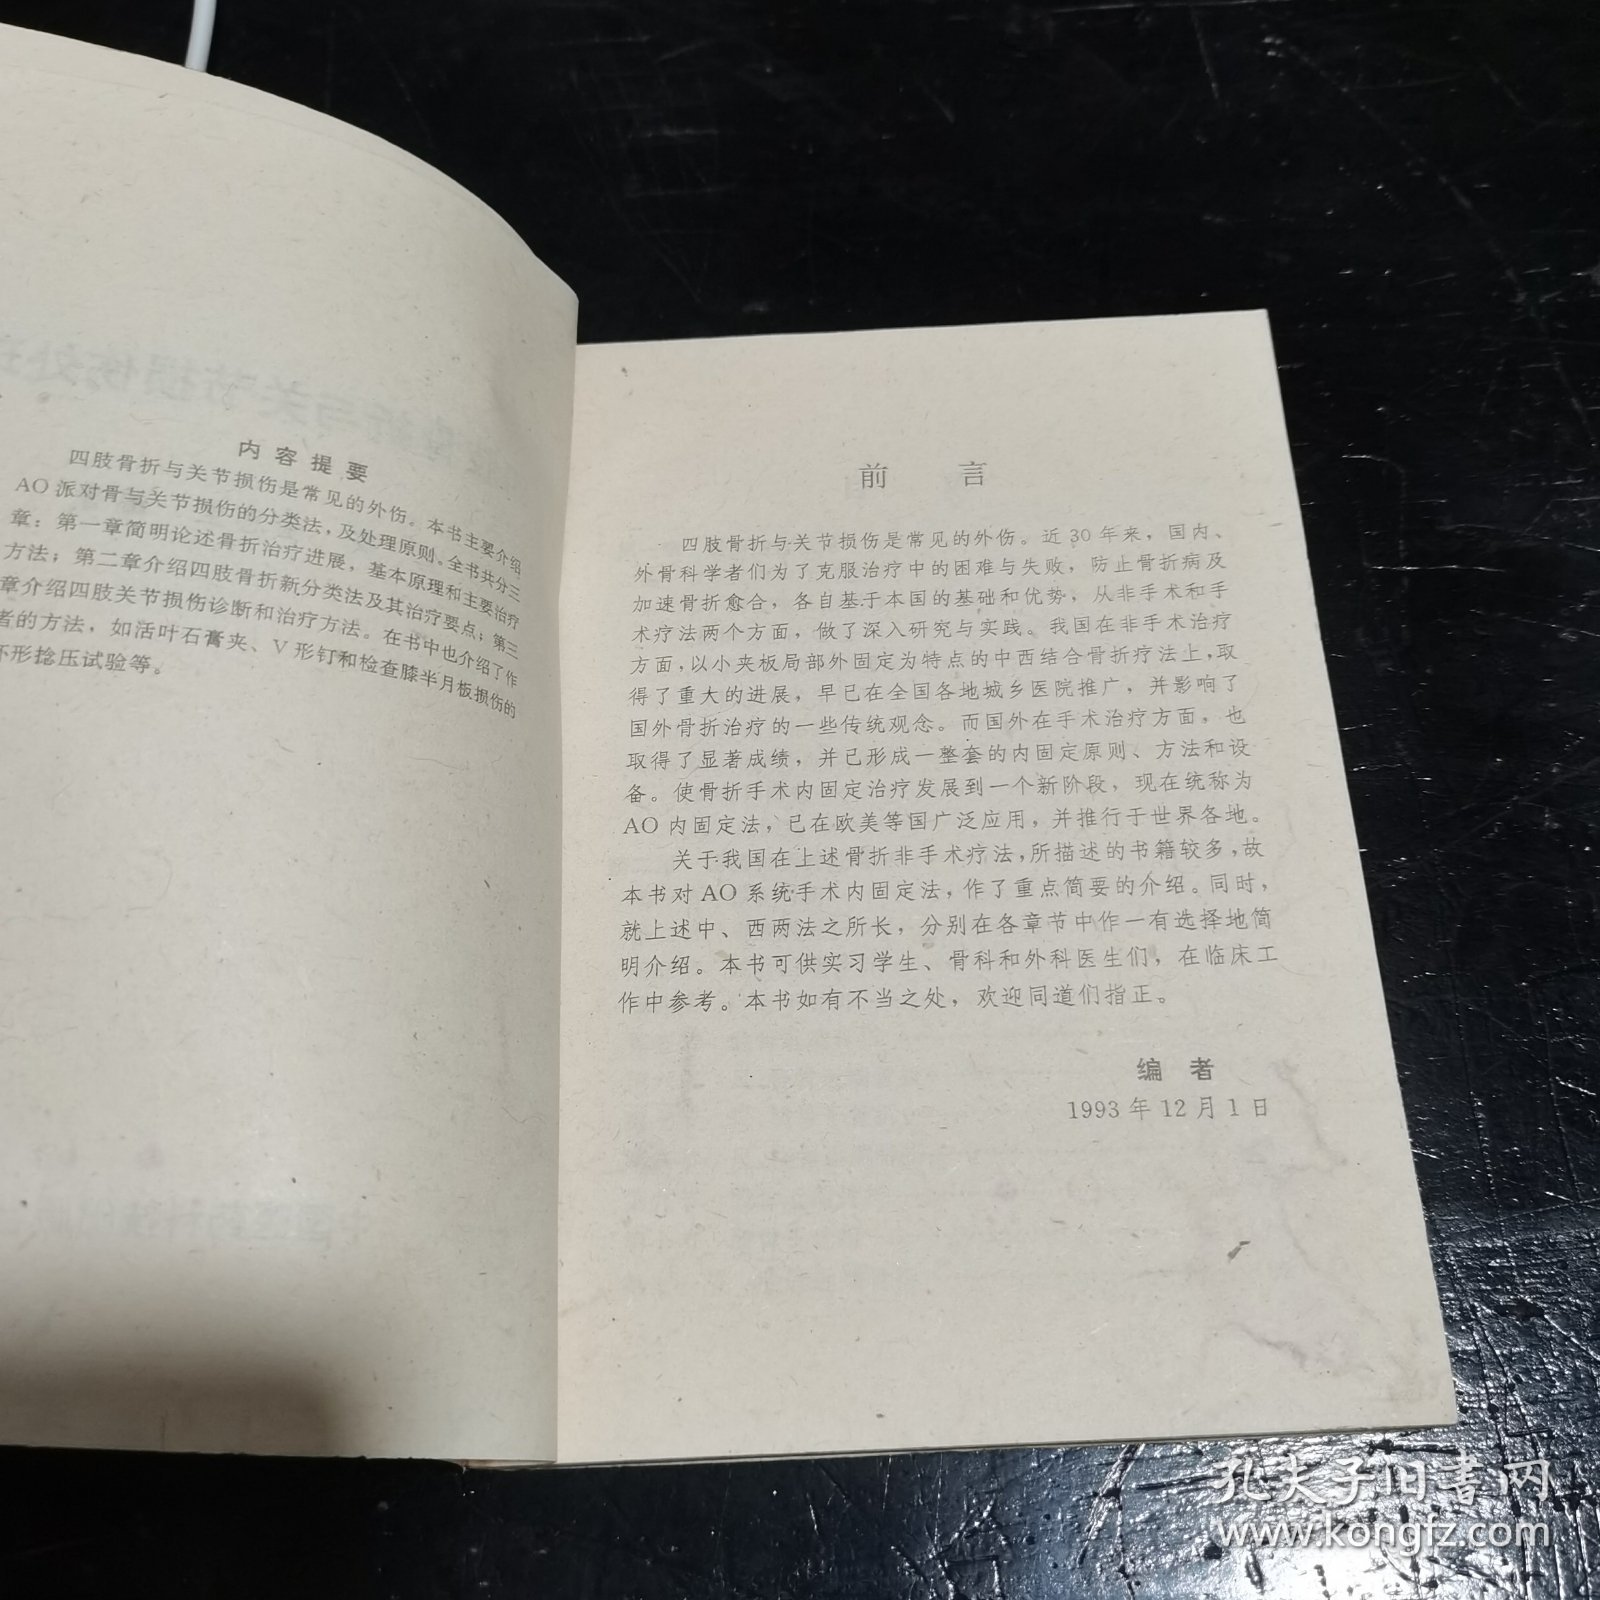 内容提要
四肢骨折与关节损伤是常见的外伤。本书主要介绍
AO派对骨与关节损伤的分类法,及处理原则。全书共分三
章：第一章简明论述骨折治疗进展，基本原理和主要治疗
方法；第二章介绍四肢骨折新分类法及其治疗要点；第三
章介绍四肢关节损伤诊断和治疗方法。在书中也介绍了作
者的方法，如活叶石膏夹、V形钉和检查膝半月板损伤的
环形捻压试验等。
前言
四肢骨折与关节损伤是常见的外伤。近30年来，国内、
外骨科学者们为了克服治疗中的困难与失败，防止骨折病及
加速骨折愈合，各自基于本国的基础和优势，从非手术和手
术疗法两个方面，做了深入研究与实践。我国在非手术治疗
方面,以小夹板局部外固定为特点的中西结合骨折疗法上,取
得了重大的进展，早已在全国各地城乡医院推广，并影响了
国外骨折治疗的一些传统观念。而国外在手术治疗方面，也
取得了显著成绩，并已形成一整套的内固定原则、方法和设
备。使骨折手术内固定治疗发展到一个新阶段，现在统称为
AO内固定法，已在欧美等国广泛应用，并推行于世界各地。
关于我国在上述骨折非手术疗法,所描述的书籍较多,故
本书对AO系统手术内固定法，作了重点简要的介绍。同时，
就上述中、西两法之所长，分别在各章节中作一有选择地简
明介绍。本书可供实习学生、骨科和外科医生们，在临床工
作中参考。本书如有不当之处，欢迎同道们指正。
编者
1993年12月1日
孔夫子旧书网
www.kongfz.com